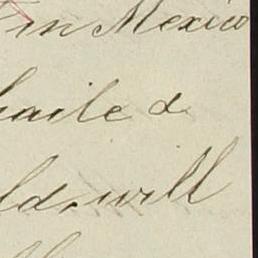 in Mexico
haile &
ld, will